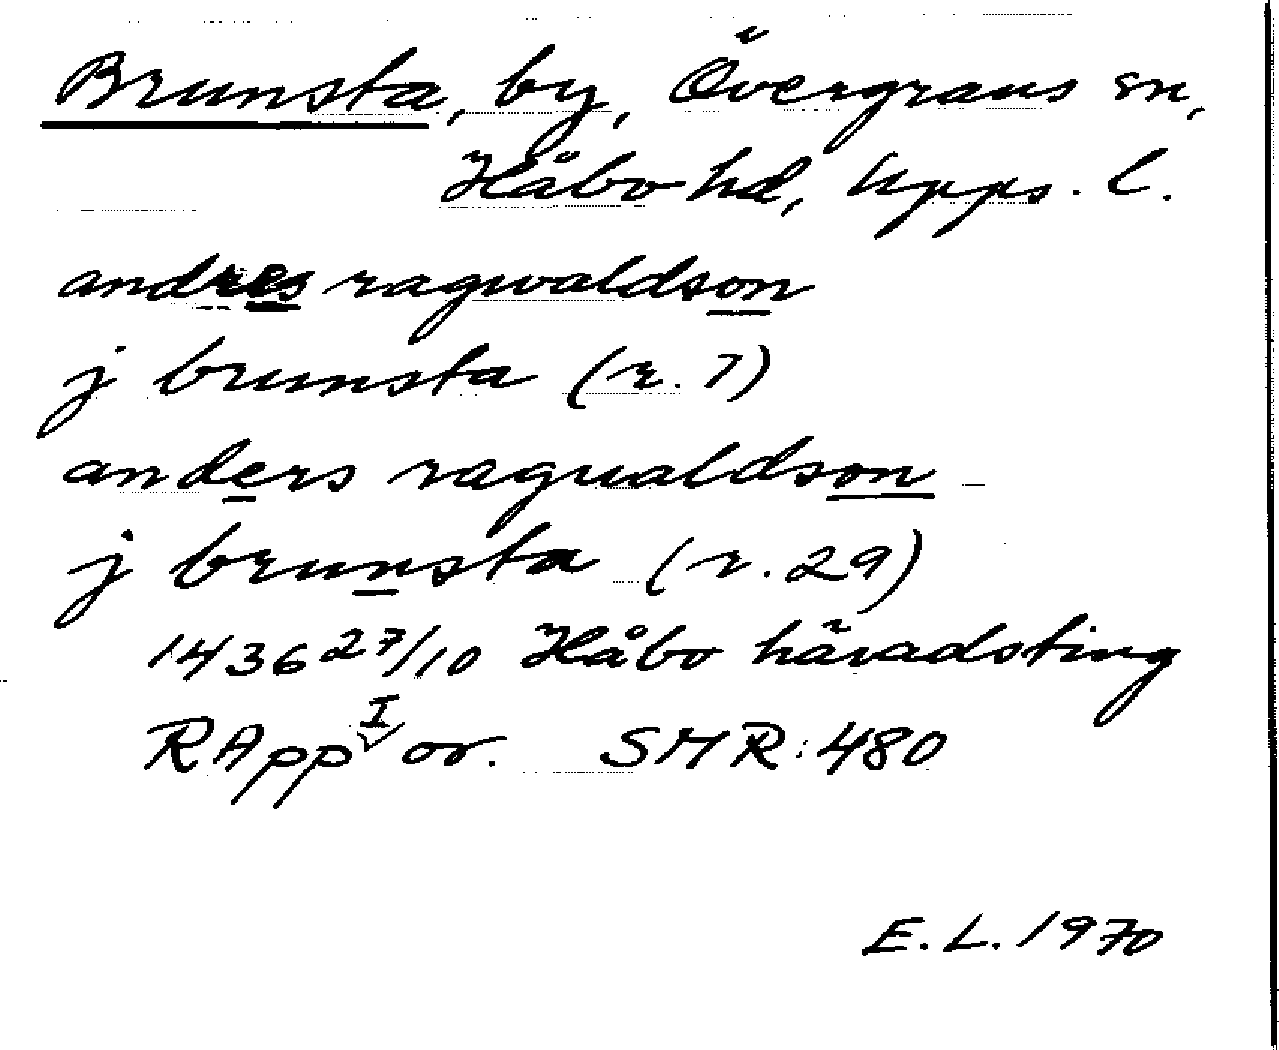 Brunsta, by, Övergrans sn,
Håbo hd, Upps. l.
andres ragwaldson
j brunsta (r. 7)
anders ragualdson
j brunsta (r. 29)
1436 27/10 Håbo häradsting
RApp I or. SMR: 480
E.L. 1970